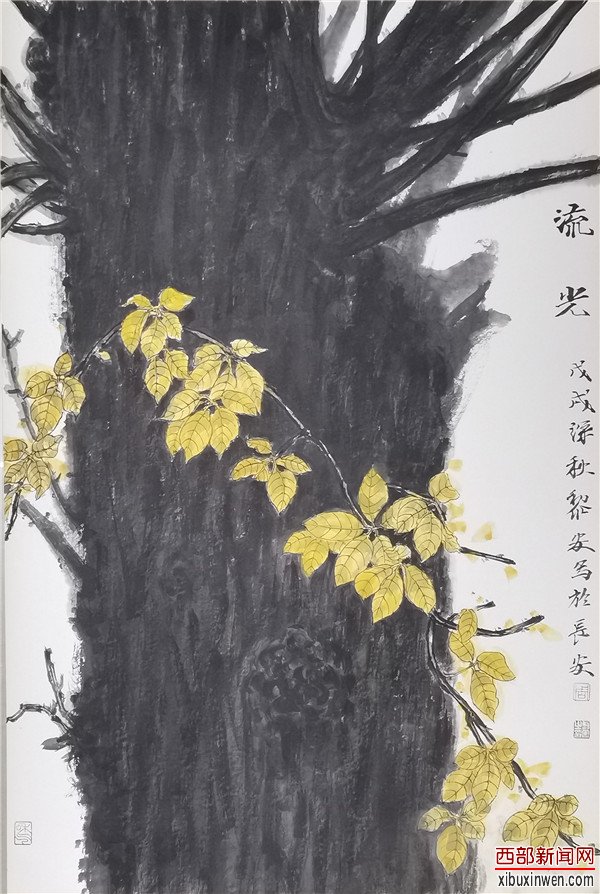 流光
戊戌深秋黎安写於長安
西部新闻网
xibuxinwen.com